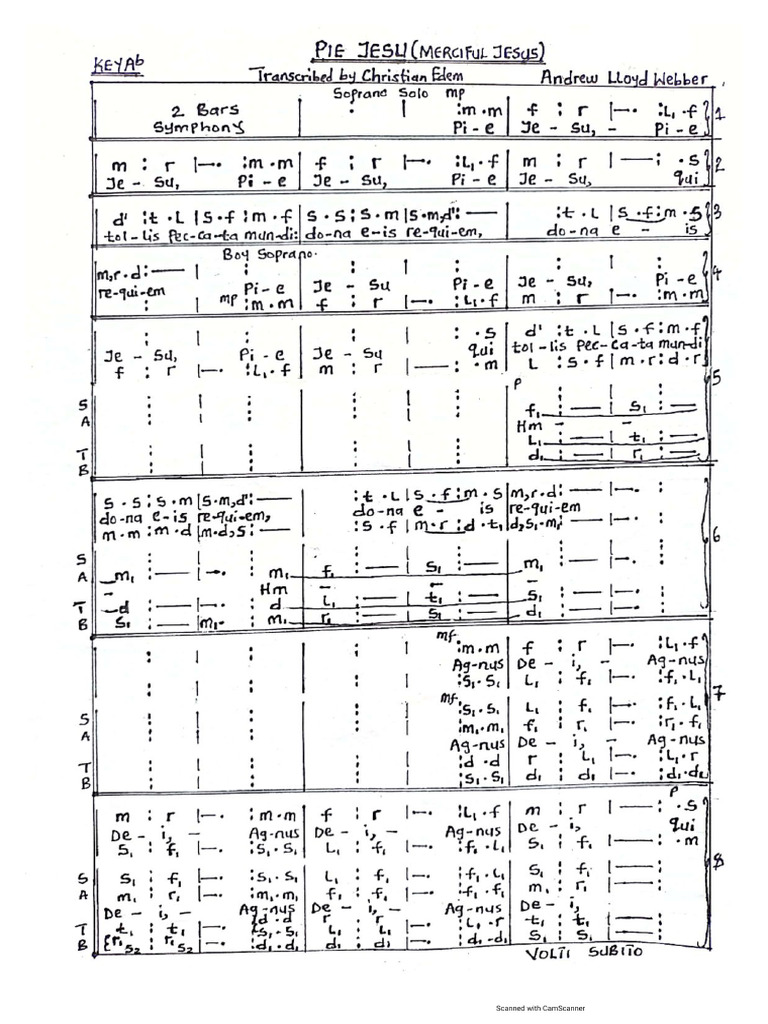 PIE JESU (MERCIFUL JESUS)
KEY Ab
Transcribed by Christian Edem Andrew Lloyd Webber
Soprano Solo mp
2 Bars : | :m.m f : r |—. :L₁.f 1
Symphony Pi-e Je - Su, - Pi-e
m : r |—. :m.m f : r |—. :L₁.f m : r |—— :.s 2
Je - Su, Pi-e Je - Su, Pi-e Je - Su, qui
d' :t.L |s.f :m.f s.s :s.m |s.m,d' :—— :t.L |s.f :m.s 3
tol-lis Pec-ca-ta mun-di: do-na e-is re-qui-em, do-na e - is
Boy Soprano.
m,r.d :—— | : : | : : | :
re-qui-em Pi-e Je - Su Pi-e Je - Su, Pi-e 4
mp :m.m f : r |—. :L₁.f m : r |—. :m.m
: | : : | :.s d' :t.L |s.f :m.f
Je - Su, Pi-e Je - Su qui tol-lis Pec-ca-ta mun-di
f : r |—. :L₁.f m : r |—— :.m L :s.f |m.r :d.r 5
P
S : | : : | : f₁ :—— |s₁ :——
A Hm - -
: | : : | : L₁ :—— |t₁ :——
T
B : | : : | : d₁ :—— |r₁ :——
s.s :s.m |s.m,d' :—— :t.L |s.f :m.s m,r.d :—— |—. :
do-na e-is re-qui-em, do-na e - is re-qui-em
m.m :m.d |m.d,s :—— :s.f |m.r :d.t₁ d,s₁.m₁ :—— |—. : 6
S
A m₁ :—— |—. : m₁ f₁ :—— |s₁ :—— m₁ :—— |—. :
- Hm - - -
T d :—— |—. : d L₁ :—— |t₁ :—— s₁ :—— |—. :
B s₁ :—— |m₁. : m₁ r₁ :—— |s₁ :—— d₁ :—— |—. :
mf
: | : : | :m.m f : r |—. :L₁.f
Ag-nus De - i, - Ag-nus
: | : : | :s₁.s₁ L₁ : f₁ |—. :f₁.L₁ 7
mf
S : | : : | :s₁.s₁ L₁ : f₁ |—. :f₁.L₁
A : | : : | :m₁.m₁ f₁ : r₁ |—. :r₁.f₁
Ag-nus De - i, - Ag-nus
T : | : : | :d.d r : L₁ |—. :L₁.r
B : | : : | :s₁.s₁ d₁ : d₁ |—. :d₁.d₁
P
m : r |—. :m.m f : r |—. :L₁.f m : r |—— :.s
De - i, - Ag-nus De - i, - Ag-nus De - i, qui
s₁ : f₁ |—. :s₁.s₁ L₁ : f₁ |—. :f₁.L₁ s₁ : f₁ |—— :.m 8
S s₁ : f₁ |—. :s₁.s₁ L₁ : f₁ |—. :f₁.L₁ s₁ : f₁ |—— :
A m₁ : r₁ |—. :m₁.m₁ f₁ : f₁ |—. :f₁.f₁ m₁ : r₁ |—— :
De - i, - Ag-nus De - i, - Ag-nus De - i,
T t₁ : t₁ |—. :d.d r : r |—. :L₁.r t₁ : t₁ |—— :
B {r₁s₂ r₁s₂ |—. :s₁.s₁ d₁ : d₁ |—. :d₁.d₁ s₁ : s₁ |—— :
VOLTI SUBITO
Scanned with CamScanner